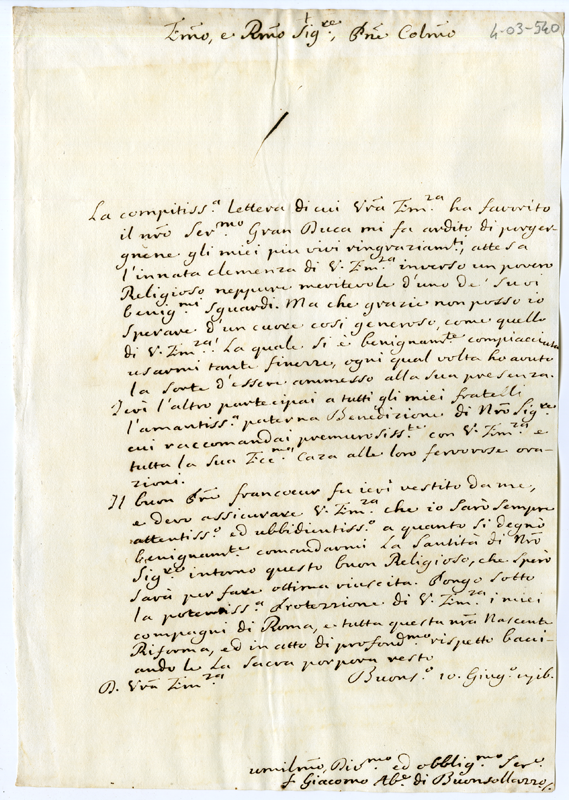 Emo, e Rmo Sig.re, Pne Colmo
4-03-540
La compitiss.a lettera di cui Vrã Em.za ha favorito
il nrõ Ser.mo Gran Duca mi fa ardito di porger-
gnene gli miei piu vivi ringraziam.ti, attesa
l'innata clemenza di V. Em.za inverso un povero
Religioso neppure meritevole d'uno de' suoi
benig.mi sguardi. Ma che grazie non posso io
sperare d'un cuore cosi generoso, come quello
di V. Em.za! La quale si è benignam.te compiaciuta
usarmi tante finezze, ogni qual volta ho avuto
la sorte d'essere ammesso alla sua presenza.
Ieri l'altro partecipai a tutti gli miei fratelli
l'amantiss.a paterna Benedizione di Nrõ Sig.re
cui raccomandai premurosiss.te con V. Em.za e
tutta la sua Ecc.ma Caza alle loro fervorose ora-
zioni.
Il buon Prẽ francoeur fu ieri vestito da me,
e devo assicurare V. Em.za che io sarò sempre
attentiss.o ed ubbidientiss.o a quanto si degnò
benignam.te comandarmi La Santità di Nrõ
Sig.re intorno questo buon Religioso, che spero
sarà per fare ottima riuscita. Pongo sotto
la potentiss.a Protezzione di V. Em.za i miei
compagni di Roma, e tutta questa nrã Nascente
Riforma, ed in atto di profond.mo rispetto baci-
ando le La sacra porpora resto
D. Vrã Em.za
Buons.o 10. Giug.o 1716.
umilmo, Div.mo ed obblig.mo Ser.e
f. Giacomo Ab.e di Buonsollazzo